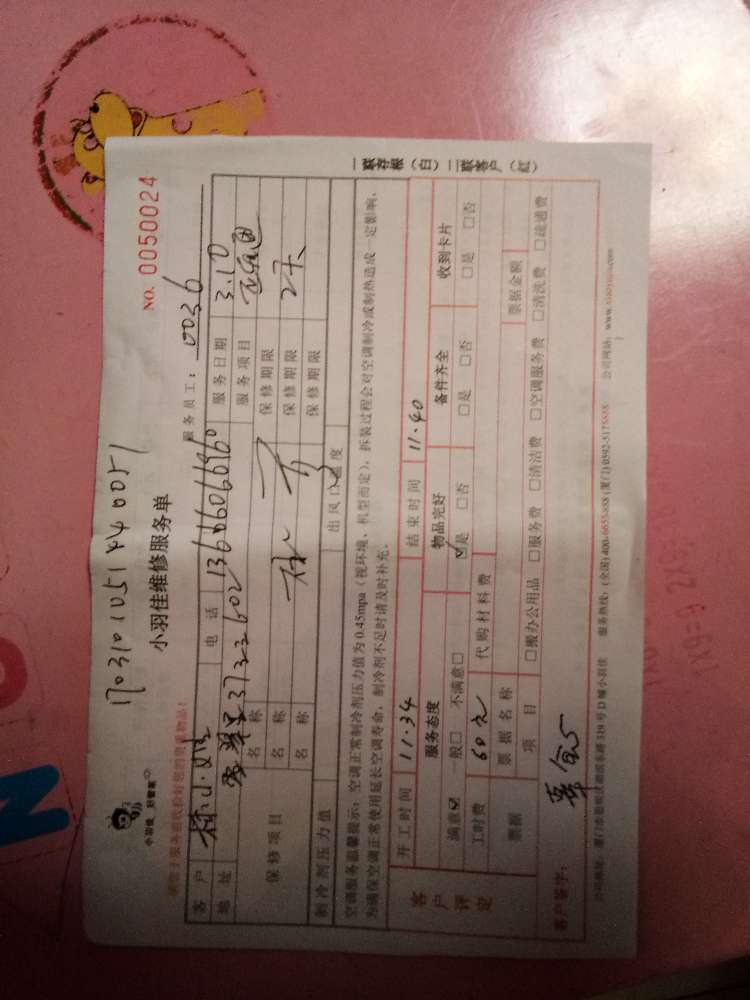 1703101051440051
小羽佳 好管家
小羽佳维修服务单
NO. 0050024
服务员工: 0036
客户 小姐 电话 13606066960 服务日期 3.10
地址 37号2602 服务项目
保修项目 名称 保修期限
名称 保修期限 2天
名称 保修期限
制冷剂压力值 出风口温度
空调服务温馨提示: 空调正常制冷剂压力值为0.45mpa(视环境、机型而定), 拆装过程会对空调制冷或制热造成一定影响,
为确保空调正常使用延长空调寿命, 制冷剂不足时请及时补充。
客户评定 开工时间 11.34 结束时间 11.40
服务态度 物品完好 备件齐全 收到卡片
满意☑ 一般□ 不满意□ ☑是 □否 □是 □否 □是 □否
工时费 60元 代购材料费
票据 票据名称 票据金额
项目 □搬办公用品 □服务费 □清洁费 □空调服务费 □清洗费 □疏通费
客户签字:
服务热线: (全国)400-6655-888 (厦门)0592-5175888 公司网站: www.xiaoyujia.com
一联存根(白) 二联客户(红)